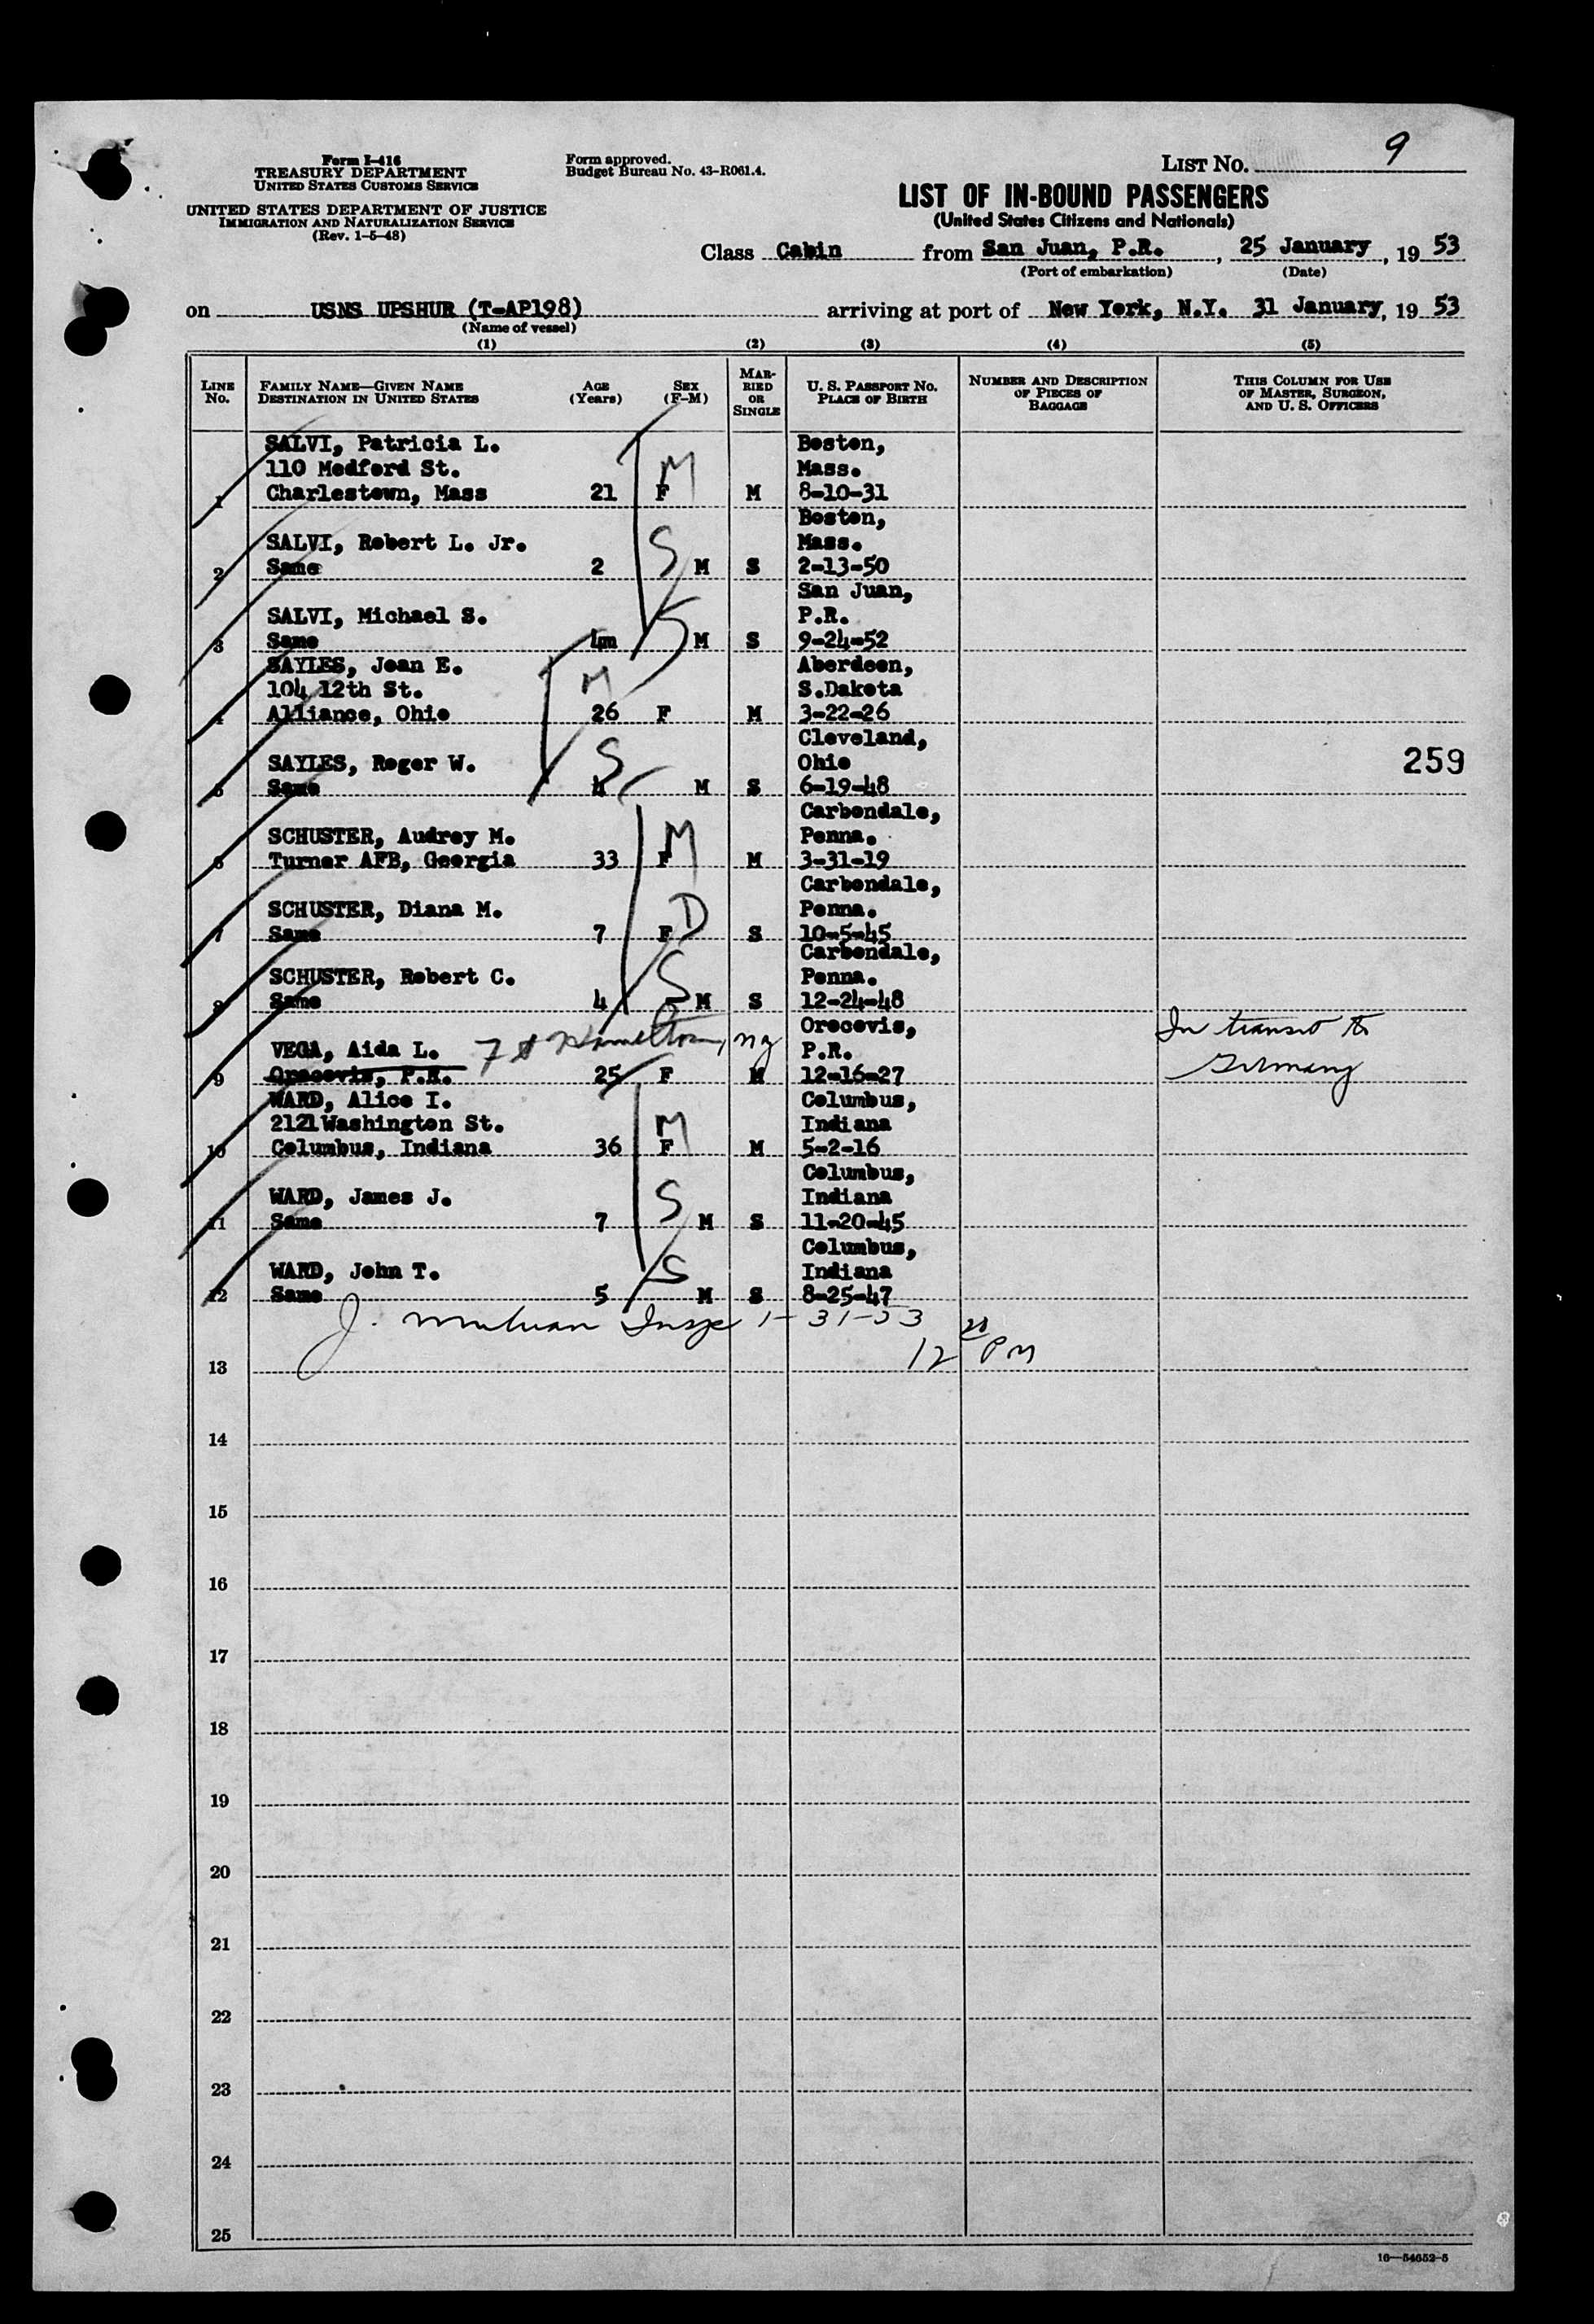 Form I-416
TREASURY DEPARTMENT
UNITED STATES CUSTOMS SERVICE
UNITED STATES DEPARTMENT OF JUSTICE
IMMIGRATION AND NATURALIZATION SERVICE
(Rev. 1-5-48)
Form approved.
Budget Bureau No. 43-R061.4.
LIST No. 9
LIST OF IN-BOUND PASSENGERS
(United States Citizens and Nationals)
Class Cabin from San Juan, P.R., 25 January, 19 53
(Port of embarkation) (Date)
on USNS UPSHUR (T-AP198) arriving at port of New York, N.Y. 31 January, 19 53
(Name of vessel)
(1) (2) (3) (4) (5)
LINE No.
FAMILY NAME—GIVEN NAME
DESTINATION IN UNITED STATES
AGE (Years)
SEX (F-M)
MARRIED OR SINGLE
U. S. PASSPORT No.
PLACE OF BIRTH
NUMBER AND DESCRIPTION
OF PIECES OF
BAGGAGE
THIS COLUMN FOR USE
OF MASTER, SURGEON,
AND U. S. OFFICERS
SALVI, Patricia L. Boston,
110 Medford St. M Mass.
1 Charlestown, Mass 21 F M 8-10-31
Boston,
SALVI, Robert L. Jr. S Mass.
2 Same 2 M S 2-13-50
San Juan,
SALVI, Michael S. S P.R.
3 Same 4m M S 9-24-52
SAYLES, Jean E. Aberdeen,
104 12th St. M S.Dakota
4 Alliance, Ohio 26 F M 3-22-26
Cleveland,
SAYLES, Roger W. S Ohio
5 Same 4 M S 6-19-48
259
Carbondale,
SCHUSTER, Audrey M. M Penna.
6 Turner AFB, Georgia 33 F M 3-31-19
Carbondale,
SCHUSTER, Diana M. D Penna.
7 Same 7 F S 10-5-45
Carbondale,
SCHUSTER, Robert C. S Penna.
8 Same 4 M S 12-24-48
Orocovis, In transit to
VEGA, Aida L. Ft Hamilton, ny P.R. Germany
9 Orocovis, P.R. 25 F M 12-16-27
WARD, Alice I. Columbus,
2121 Washington St. M Indiana
10 Columbus, Indiana 36 F M 5-2-16
Columbus,
WARD, James J. S Indiana
11 Same 7 M S 11-20-45
Columbus,
WARD, John T. S Indiana
12 Same 5 M S 8-25-47
J. Insp 1-31-53
12 PM
13
14
15
16
17
18
19
20
21
22
23
24
25
16—54652-5